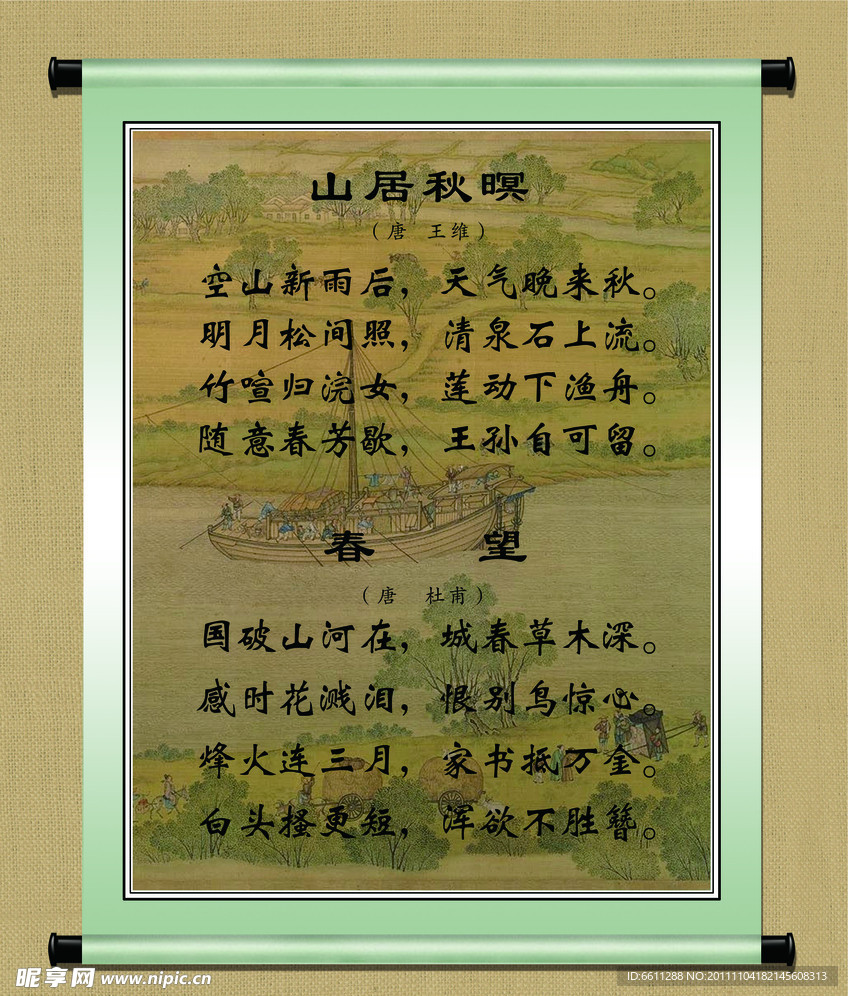 山居秋暝
（唐　王维）
空山新雨后，天气晚来秋。
明月松间照，清泉石上流。
竹喧归浣女，莲动下渔舟。
随意春芳歇，王孙自可留。
春　望
（唐　杜甫）
国破山河在，城春草木深。
感时花溅泪，恨别鸟惊心。
烽火连三月，家书抵万金。
白头搔更短，浑欲不胜簪。
昵享网 www.nipic.cn
ID:6611288 NO:20111104182145608313